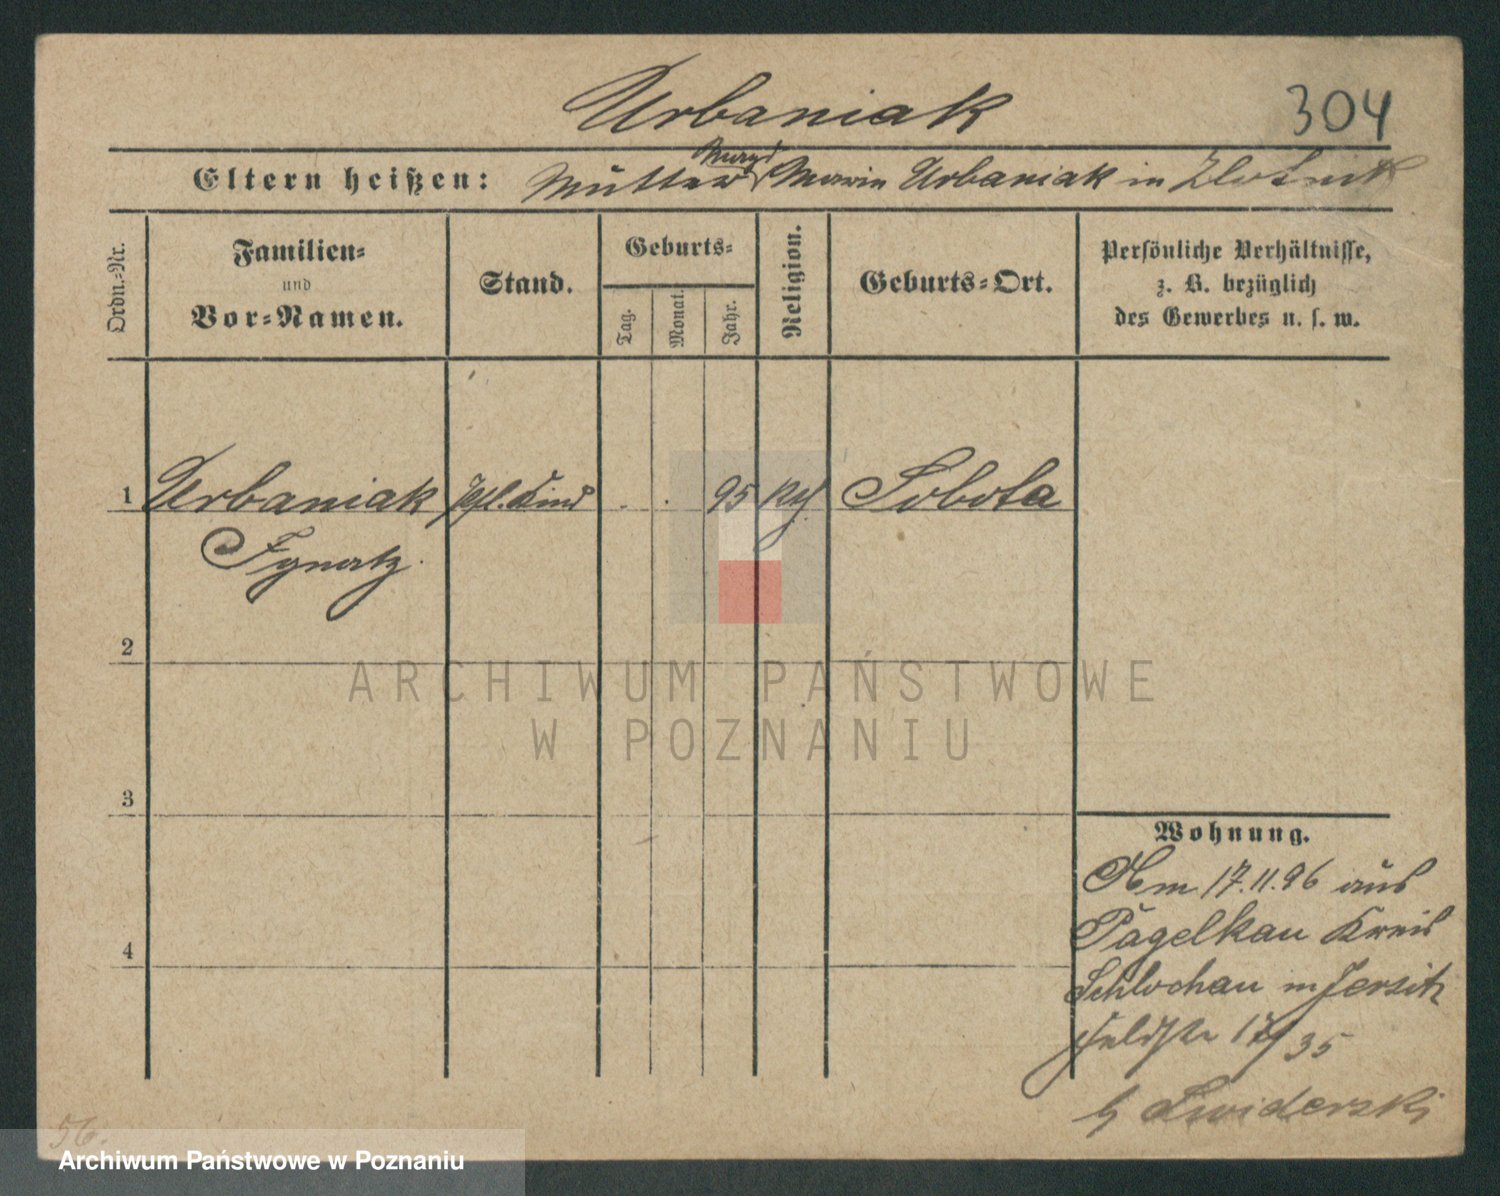 Urbaniak
304
Eltern heißen: Mutter Magd Maria Urbaniak in Zlotnik
Ordn.=Nr.
Familien=
und
Vor=Namen.
Stand.
Geburts=
Tag.
Monat.
Jahr.
Religion.
Geburts=Ort.
Persönliche Verhältnisse,
z. B. bezüglich
des Gewerbes u. s. w.
1 Urbaniak Kind . . 95 kth Sobota
Ignatz.
2
ARCHIWUM PAŃSTWOWE
W POZNANIU
3
4
Wohnung.
Am 17.11.96 aus
Pagelkau Kreis
Schlochau in Jersitz
Feldstr 17/35
b Swiderski
56.
Archiwum Państwowe w Poznaniu